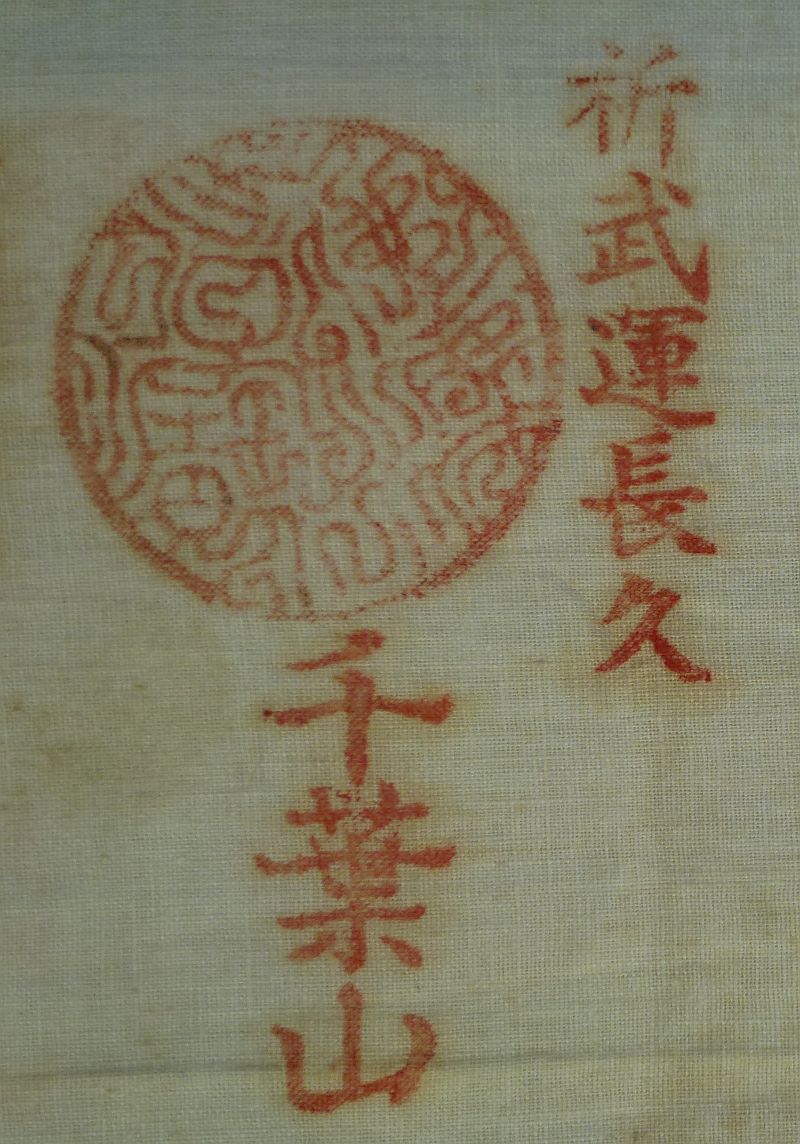 祈武運長久
千葉山